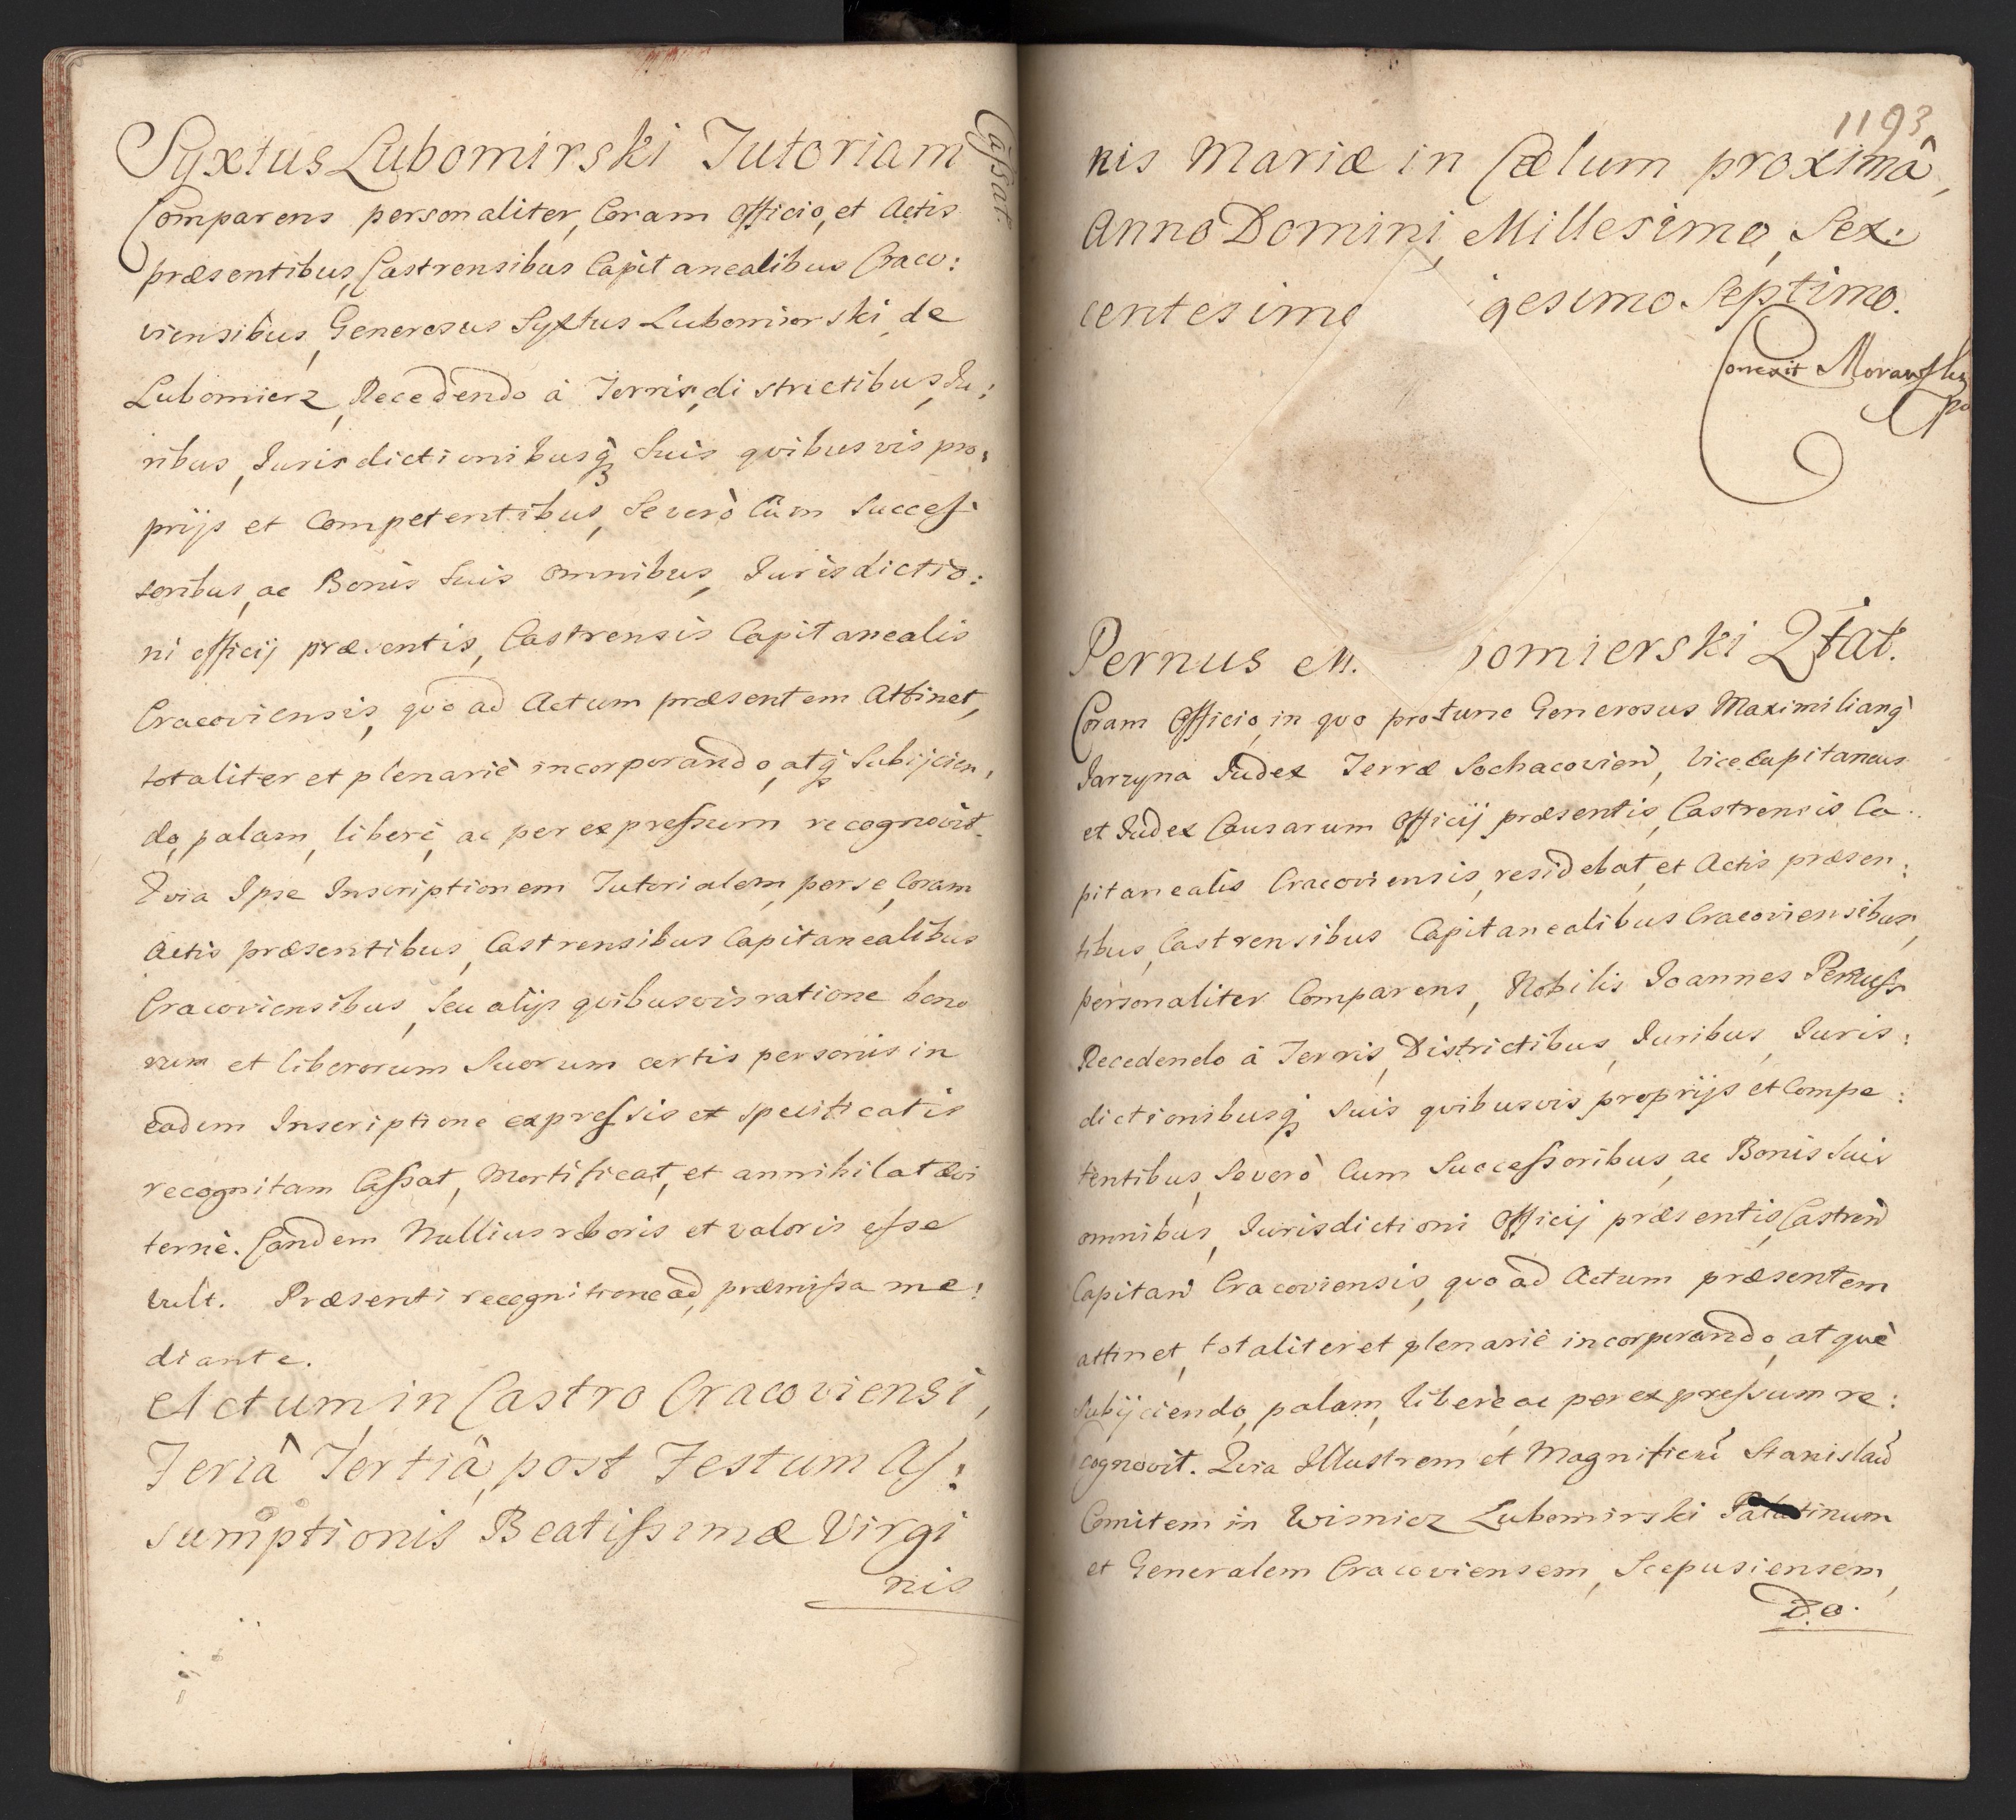 Syxtus Lubomirski Tutoriam
Cassat.
Comparens personaliter, Coram Officio, et Actis
præsentibus, Castrensibus Capitanealibus Craco:
viensibus, Generosus Syxtus Lubomierski, de
Lubomierz, Recedendo à Terris, districtibus, Iu:
ribus, Jurisdictionibusq suis qvibusvis pro:
prijs et Competentibus, Severò Cum Succes:
soribus, ac Bonis suis omnibus, Jurisdictio:
ni officij præsentis, Castrensis Capitanealis
Cracoviensis, qvo ad Actum præsentem Attinet,
totaliter et plenariè incorporando, atq Subijcien:
do, palam, liberè, ac per expressum recognovit.
Qvia Ipse Inscriptionem Tutorialem, per se, Coram
Actis præsentibus, Castrensibus Capitanealibus
Cracoviensibus, seu alijs qvibusvis ratione bono
rum et liberorum Suorum certis personis in
eadem Inscriptione expressis et specificatis
recognitam Cassat, Mortificat, et annihilat ævi
ternè. Eandem Nullius roboris et valoris esse
vult. Præsenti recognitione ad præmissa me:
diante.
Actum in Castro Cracoviensi,
Feriâ Tertiâ, post Festum As:
sumptionis Beatissimæ Virgi
nis
1193
nis Mariæ in Cælum proximâ,
Anno Domini, Millesimo, Sex:
centesimo gesimo Septimo.
Correxit Morawski
Pernus M. omierski Qtat.
Coram Officio, in qvo protunc Generosus Maximilianq
Jarzyna Judex Terræ Sochacovien, Vicecapitaneus
et Judex Causarum Officij præsentis, Castrensis Ca:
pitanealis Cracoviensis, residebat, et Actis præsen:
tibus, Castrensibus Capitanealibus Cracoviensibus,
personaliter Comparens, Nobilis Joannes Pernuss
Recedendo à Terris, Districtibus, Juribus, Juris:
dictionibusq suis qvibusvis proprijs et Compe:
tentibus, Severò Cum Successoribus, ac Bonis suis
omnibus, Jurisdictioni Officij præsentis, Castren
Capitan Cracoviensis, qvo ad Actum præsentem
attinet, totaliter et plenariè incorporando, atque
Subijciendo, palam, liberè ac per expressum re:
cognovit. Qvia Illustrem et Magnificũ Stanislaũ
Comitem in Wisnicz Lubomirski Palatinum
et Generalem Cracoviensem, Scepusiensem,